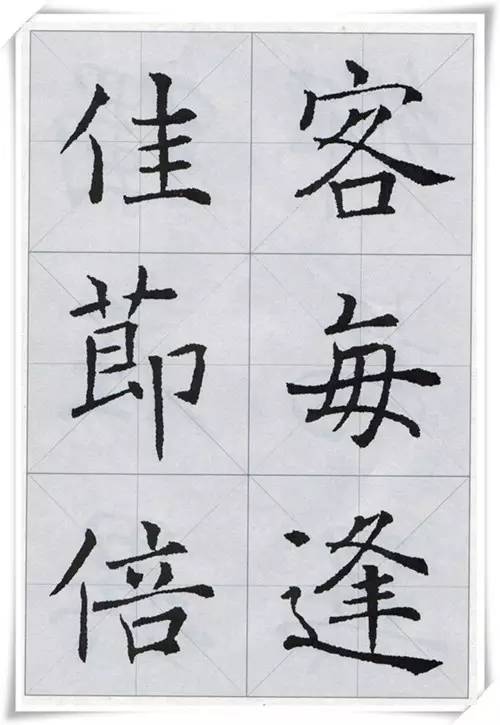 客每逢
佳節倍